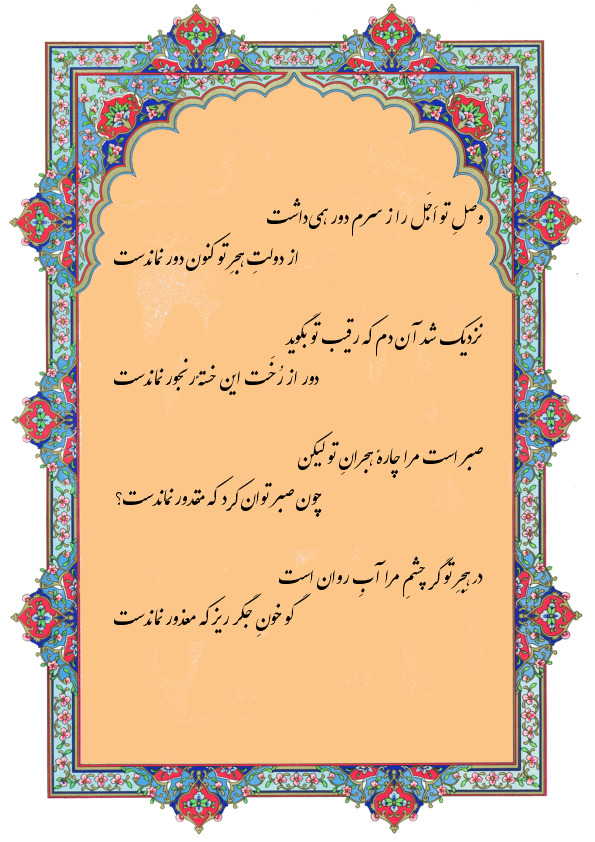 وصلِ تو اَجَل را ز سرم دور همی‌داشت
از دولتِ هجرِ تو کنون دور نماندست
نزدیک شد آن دم که رقیب تو بگوید
دور از رُخَت این خستهٔ رنجور نماندست
صبر است مرا چارهٔ هجرانِ تو لیکن
چون صبر توان کرد که مقدور نماندست؟
در هِجرِ تو گر چشمِ مرا آبِ روان است
گو خونِ جگر ریز که معذور نماندست